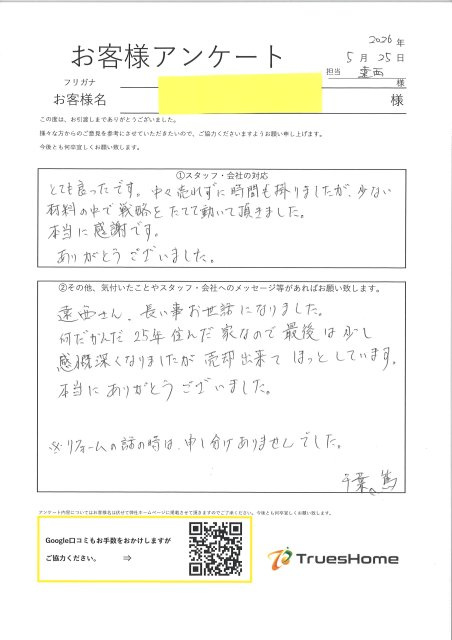 お客様アンケート
2026年
5月25日
担当 遠西
フリガナ 様
お客様名 様
この度は、お引渡しまでありがとうございました。
様々な方からのご意見を参考にさせていただきたいので、ご協力くださいますようお願い申し上げます。
今後とも何卒宜しくお願い致します。
①スタッフ・会社の対応
とても良ったです。中々売れずに時間も掛りましたが、少ない
材料の中で戦略をたてて動いて頂きました。
本当に感謝です。
ありがとうございました。
②その他、気付いたことやスタッフ・会社へのメッセージ等があればお願い致します。
遠西さん、長い事お世話になりました。
何だかんだ25年住んだ家なので最後は少し
感慨深くなりましたが売却出来てほっとしています。
本当にありがとうございました。
※リフォームの話の時は、申し分けありませんでした。
千葉 篤
アンケート内容についてはお客様名は伏せて弊社ホームページに掲載させて頂きますのでご了承ください。今後とも何卒宜しくお願い致します。
Google口コミもお手数をおかけしますが
ご協力ください。 ⇒
TruesHome